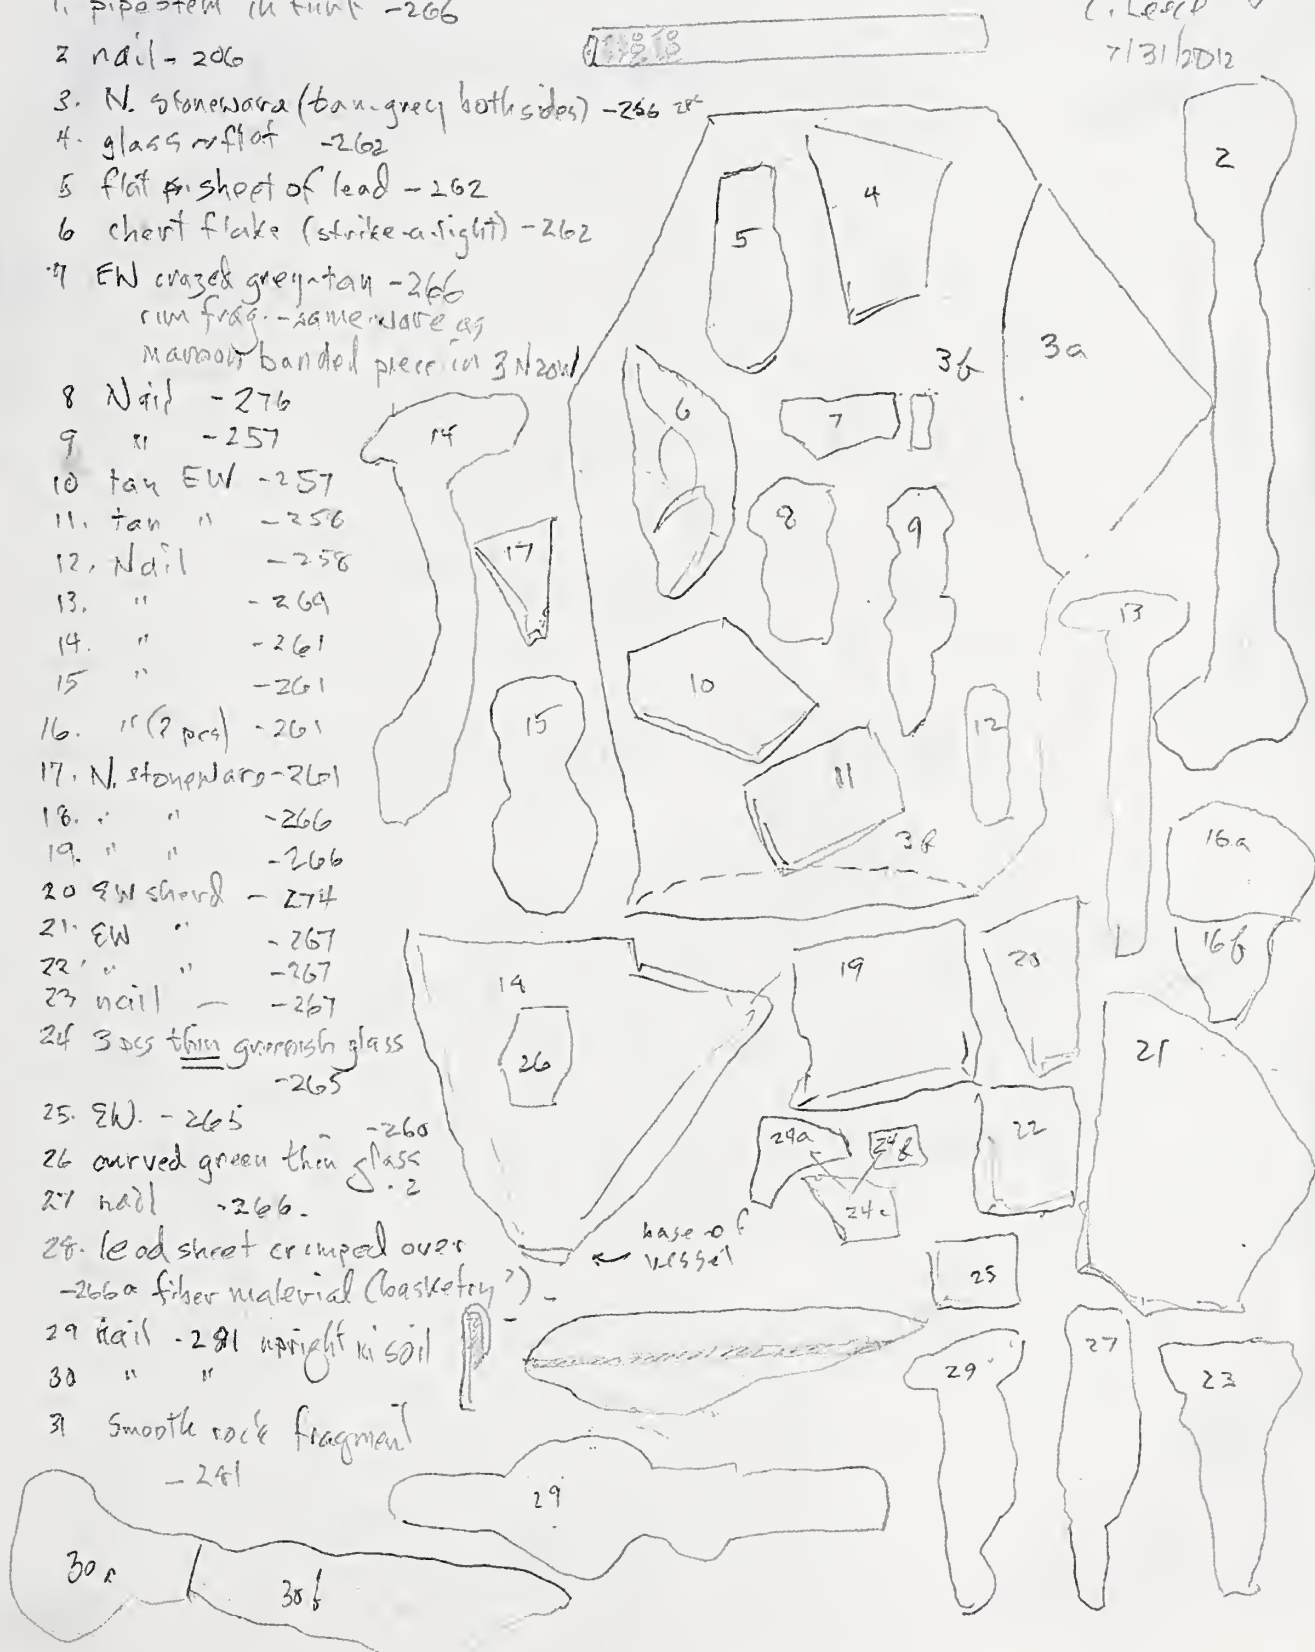 1. pipe stem in turf -266
C. Leece
7/31/2012
2 nail - 206
3. N. stoneware (tan-grey both sides) -256
4. glass ~ flat -262
5 flat sheet of lead - 262
6 chert flake (strike-a-light) -262
7 EW crazed grey-tan -266
rim frag. - same ware as
maroon banded piece in 3
8 Nail -276
9 " -257
10 tan EW -257
11. tan " -256
12. Nail -258
13. " -269
14. " -261
15 " -261
16. " (2 pcs) -261
17. N. stoneware -261
18. " " -266
19. " " -266
20 EW sherd - 274
21. EW " -267
22 " " -267
23 nail - -267
24 3 pcs thin greenish glass
-265
25. EW. - 265
-260
26 curved green thin glass
.2
27 nail -266.
28. lead sheet crimped over
-266 a fiber material (basketry?) -
29 nail -281 upright in soil
30 " "
31 Smooth rock fragment
- 281
2
4
5
3b
3a
6
7
14
8
9
17
13
10
15
12
11
3b
16a
16b
14
19
20
26
21
24a
24b
22
24c
base of
vessel
25
29
27
23
29
30a
30b